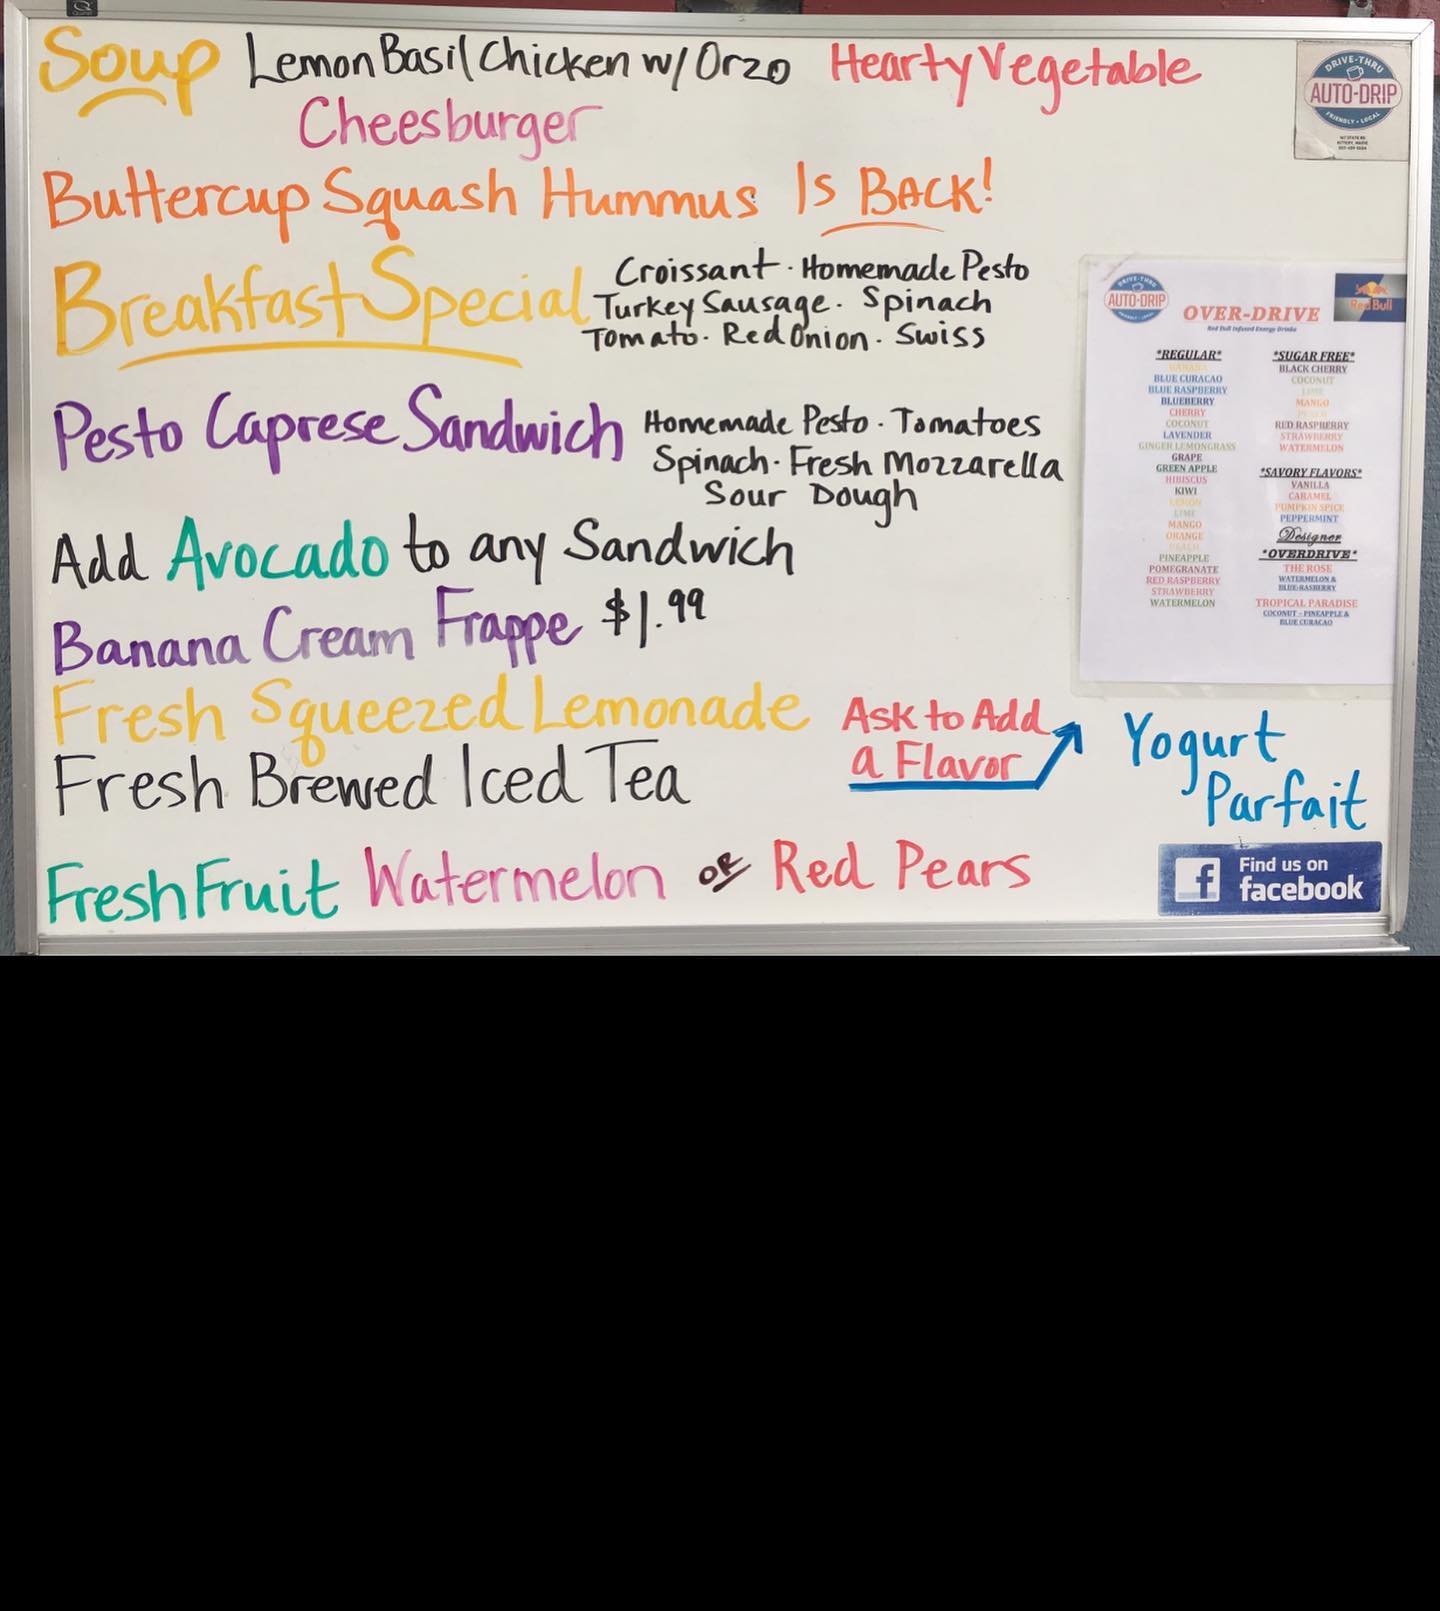 Soup Lemon Basil Chicken w/ Orzo Hearty Vegetable
Cheesburger
Buttercup Squash Hummus Is BACK!
Breakfast Special
Croissant · Homemade Pesto
Turkey Sausage · Spinach
Tomato · Red Onion · Swiss
Pesto Caprese Sandwich
Homemade Pesto · Tomatoes
Spinach · Fresh Mozzarella
Sour Dough
Add Avocado to any Sandwich
Banana Cream Frappe $1.99
Fresh Squeezed Lemonade
Fresh Brewed Iced Tea
Ask to Add
a Flavor
Fresh Fruit Watermelon OR Red Pears
DRIVE-THRU
AUTO-DRIP
FRIENDLY • LOCAL
DRIVE-THRU
AUTO-DRIP
Red Bull
OVER-DRIVE
Red Bull Infused Energy Drinks
*REGULAR*
BANANA
BLUE CURACAO
BLUE RASPBERRY
BLUEBERRY
CHERRY
COCONUT
LAVENDER
GINGER LEMONGRASS
GRAPE
GREEN APPLE
HIBISCUS
KIWI
LEMON
LIME
MANGO
ORANGE
PEACH
PINEAPPLE
POMEGRANATE
RED RASPBERRY
STRAWBERRY
WATERMELON
*SUGAR FREE*
BLACK CHERRY
COCONUT
LIME
MANGO
PEACH
RED RASPBERRY
STRAWBERRY
WATERMELON
*SAVORY FLAVORS*
VANILLA
CARAMEL
PUMPKIN SPICE
PEPPERMINT
Designer
*OVERDRIVE*
THE ROSE
WATERMELON &
BLUE-RASBERRY
TROPICAL PARADISE
COCONUT – PINEAPPLE &
BLUE CURACAO
Yogurt
Parfait
Find us on
facebook